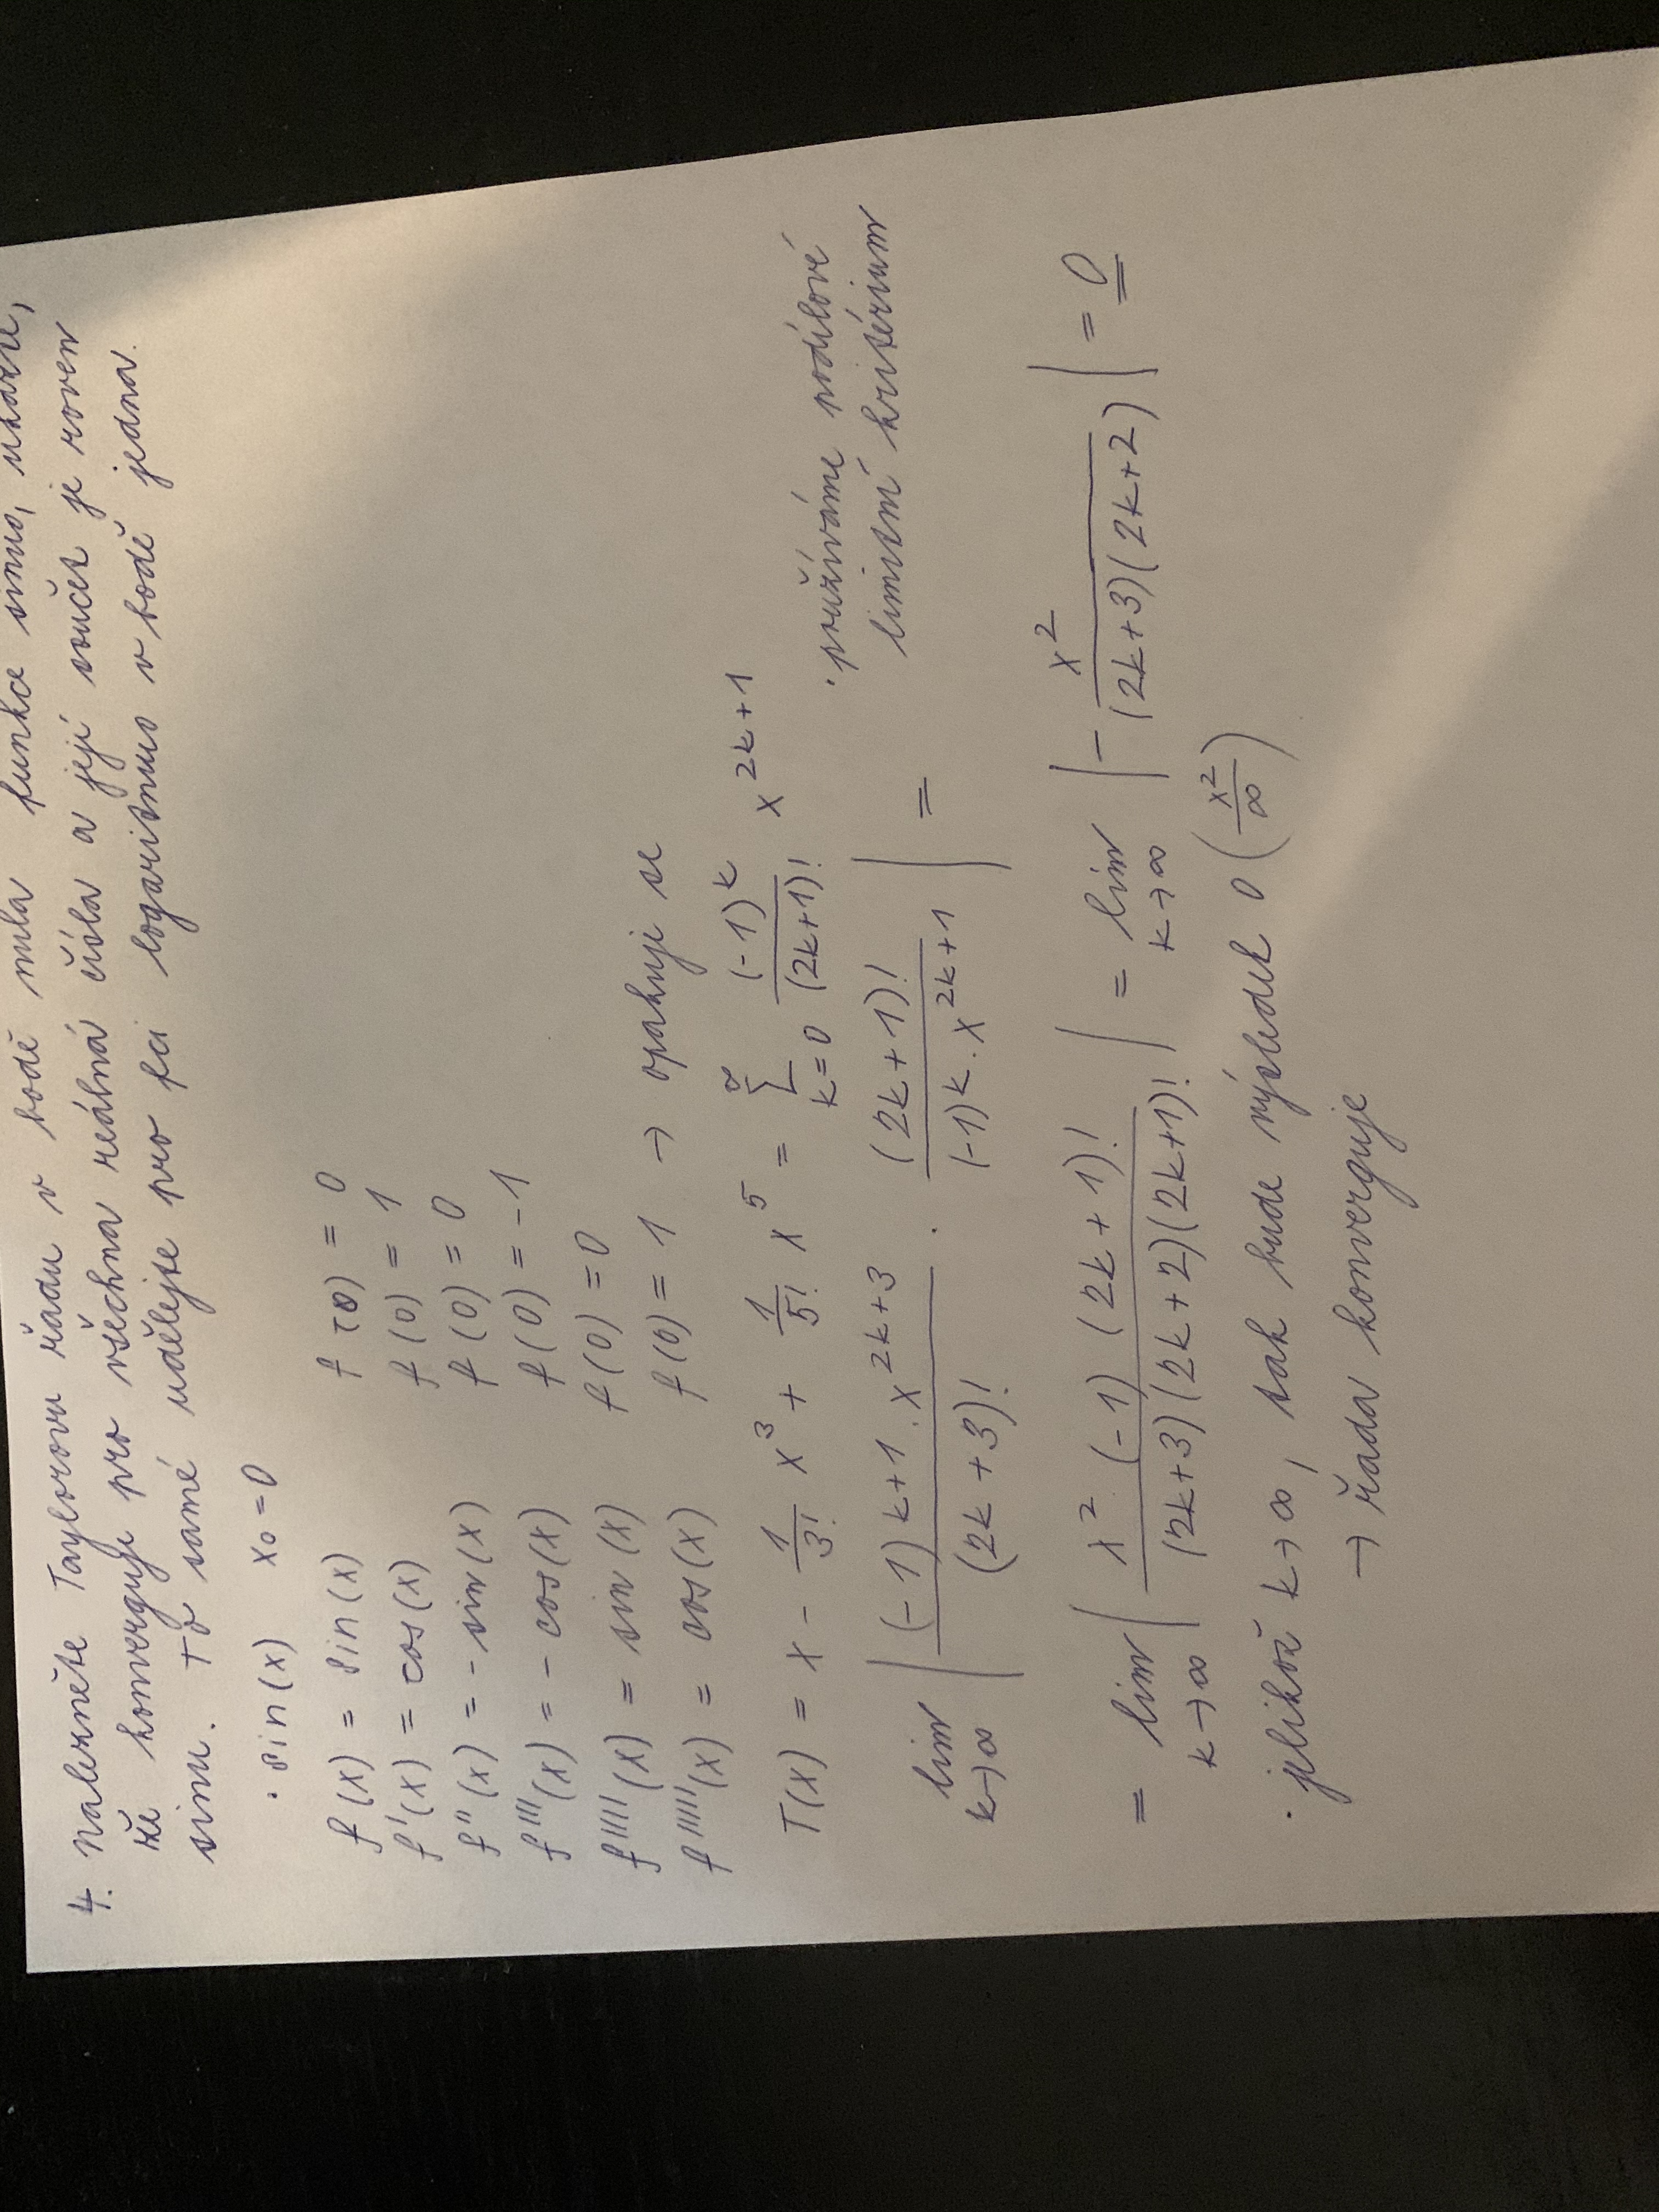 4. Nalezněte Taylorovu řadu v bodě nula funkce sinus, ukažte,
že konverguje pro všechna reálná čísla a její součet je roven
sinu. To samé udělejte pro fci logaritmus v bodě jedna.
· sin(x) x₀=0
f(x) = sin(x) f(0) = 0
f'(x) = cos(x) f(0) = 1
f''(x) = -sin(x) f(0) = 0
f'''(x) = -cos(x) f(0) = -1
f''''(x) = sin(x) f(0) = 0
f'''''(x) = cos(x) f(0) = 1 → opakuji se
T(x) = x - 1/3! x³ + 1/5! x⁵ = ∑_{k=0}^{∞} (-1)^k/(2k+1)! x^{2k+1}
· používáme podílové
limitní kritérium
lim_{k→∞} | (-1)^{k+1} · x^{2k+3} / (2k+3)! · (2k+1)! / ((-1)^k · x^{2k+1}) | =
= lim_{k→∞} | x² (-1) (2k+1)! / ((2k+3)(2k+2)(2k+1)!) | = lim_{k→∞} | - x² / ((2k+3)(2k+2)) | = 0
· jelikož k→∞, tak bude výsledek 0 (x²/∞)
→ řada konverguje